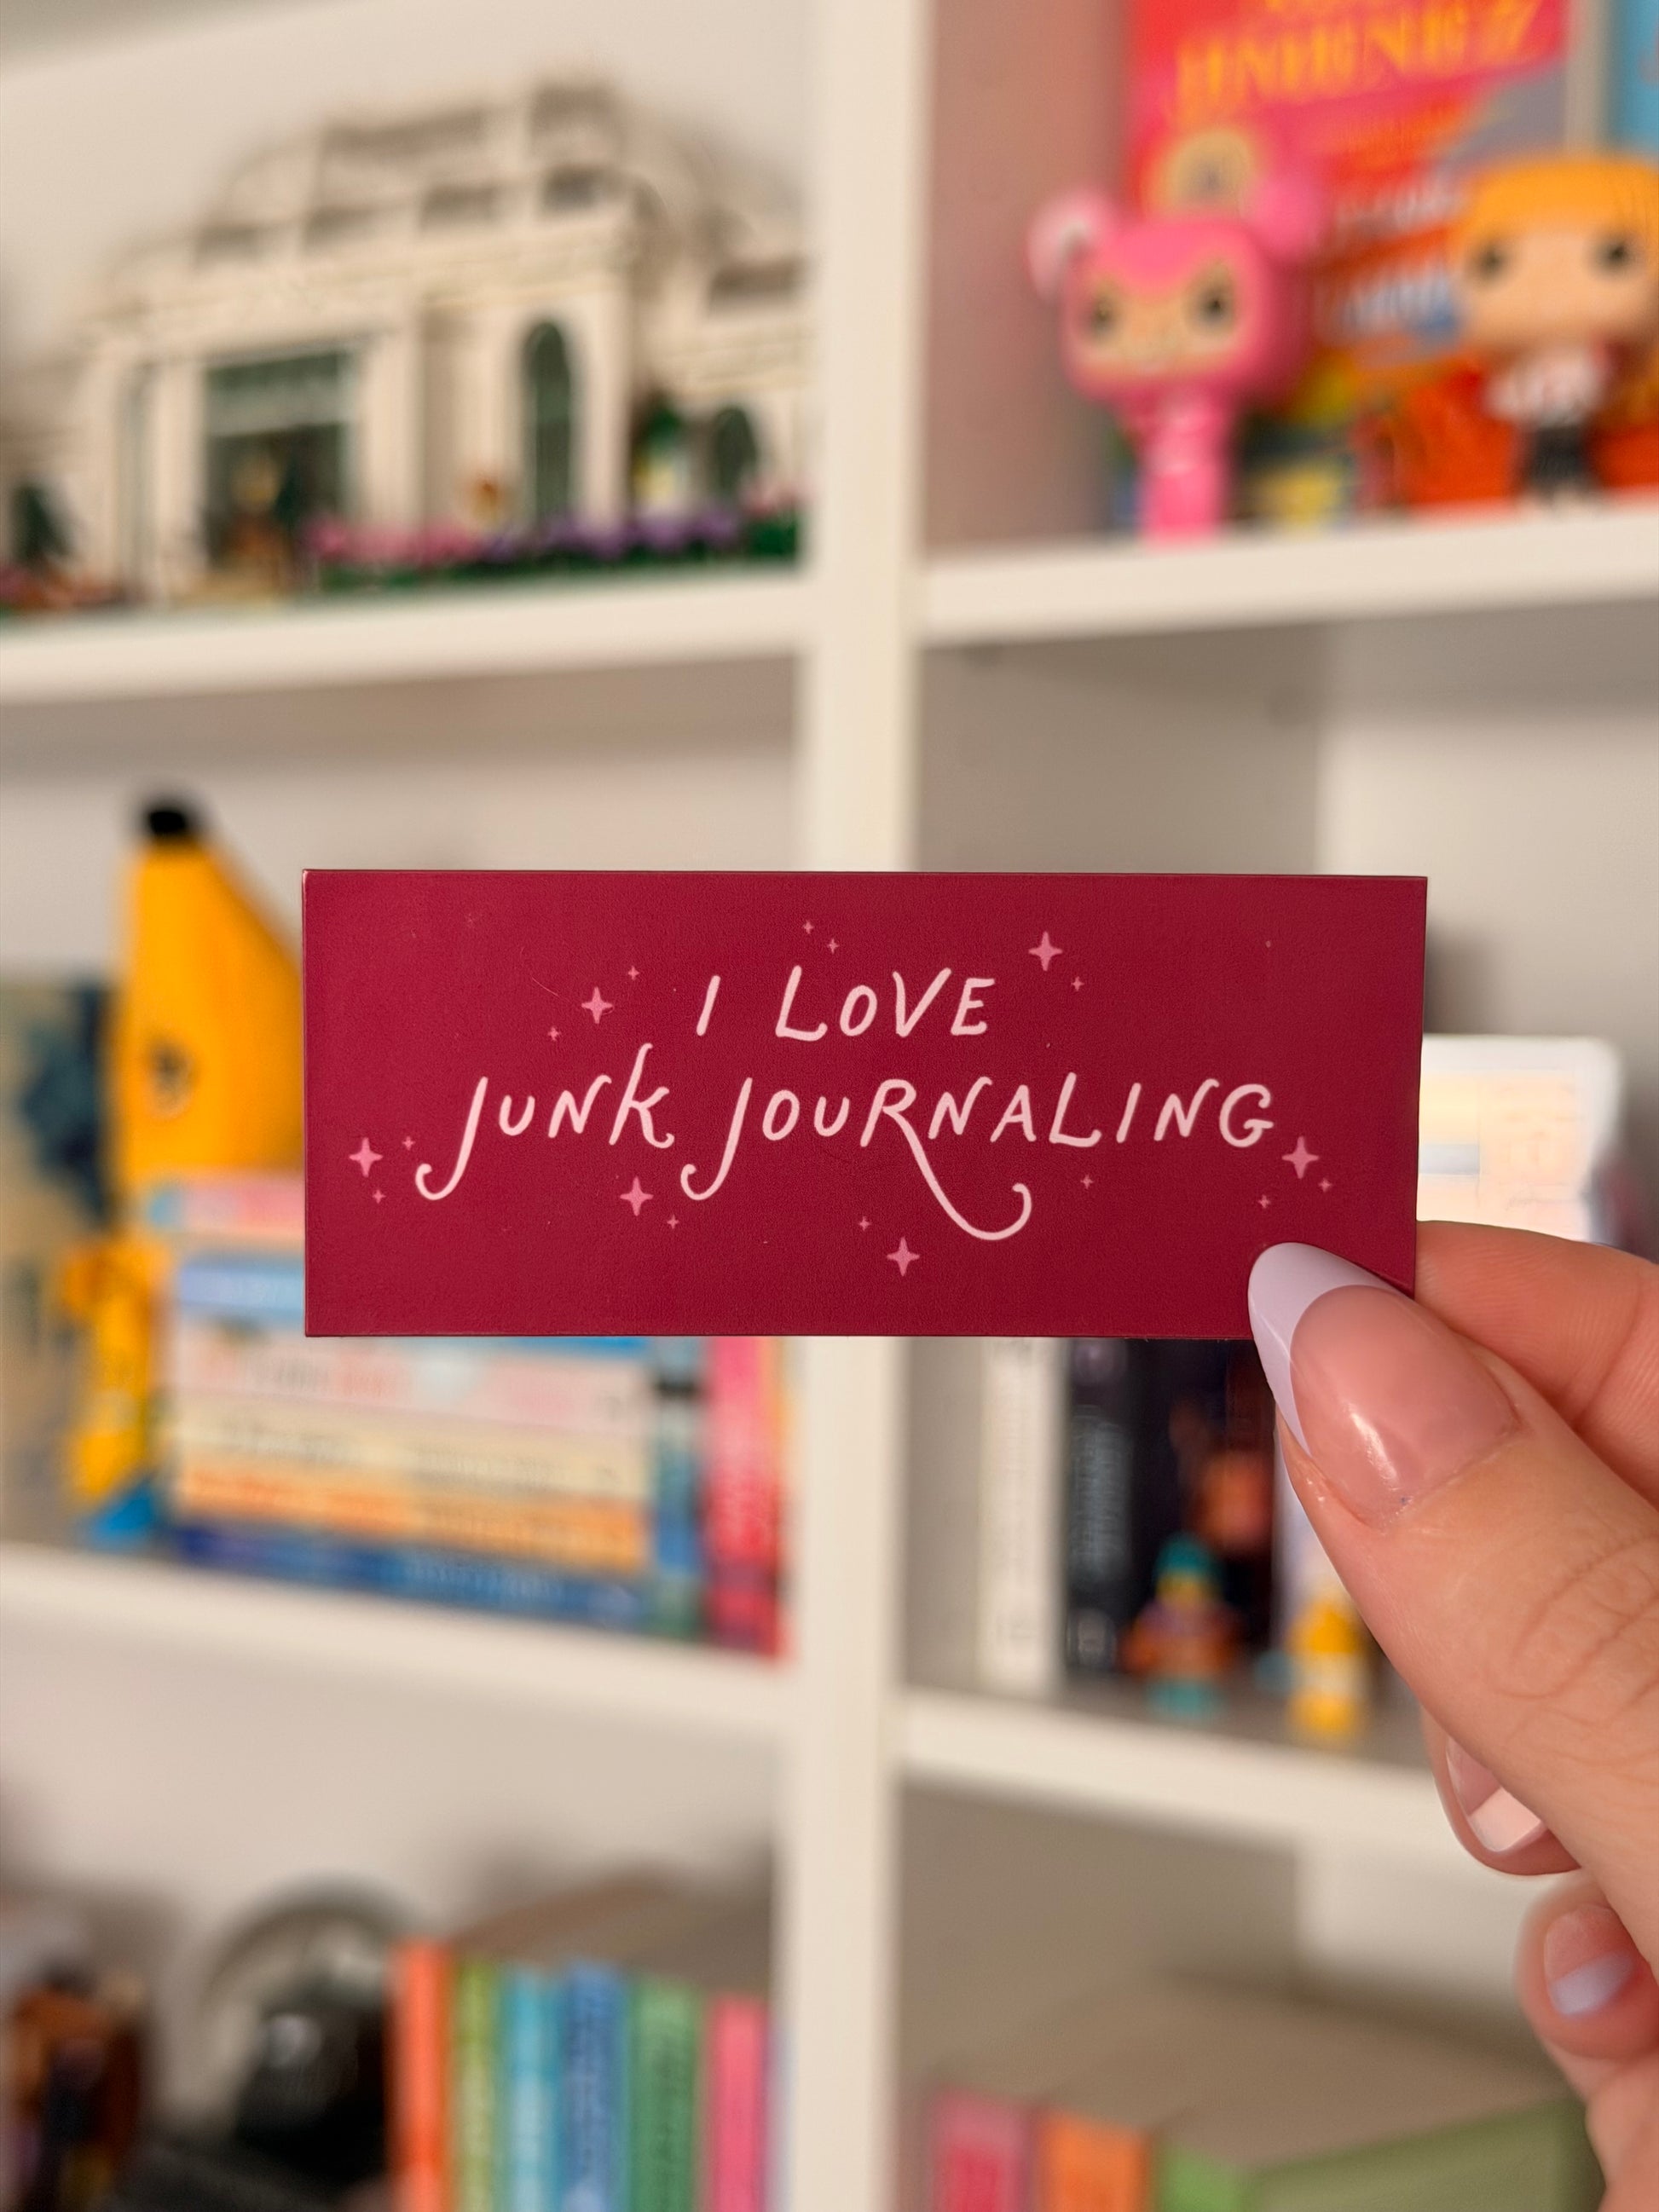 I LOVE
JUNK JOURNALING